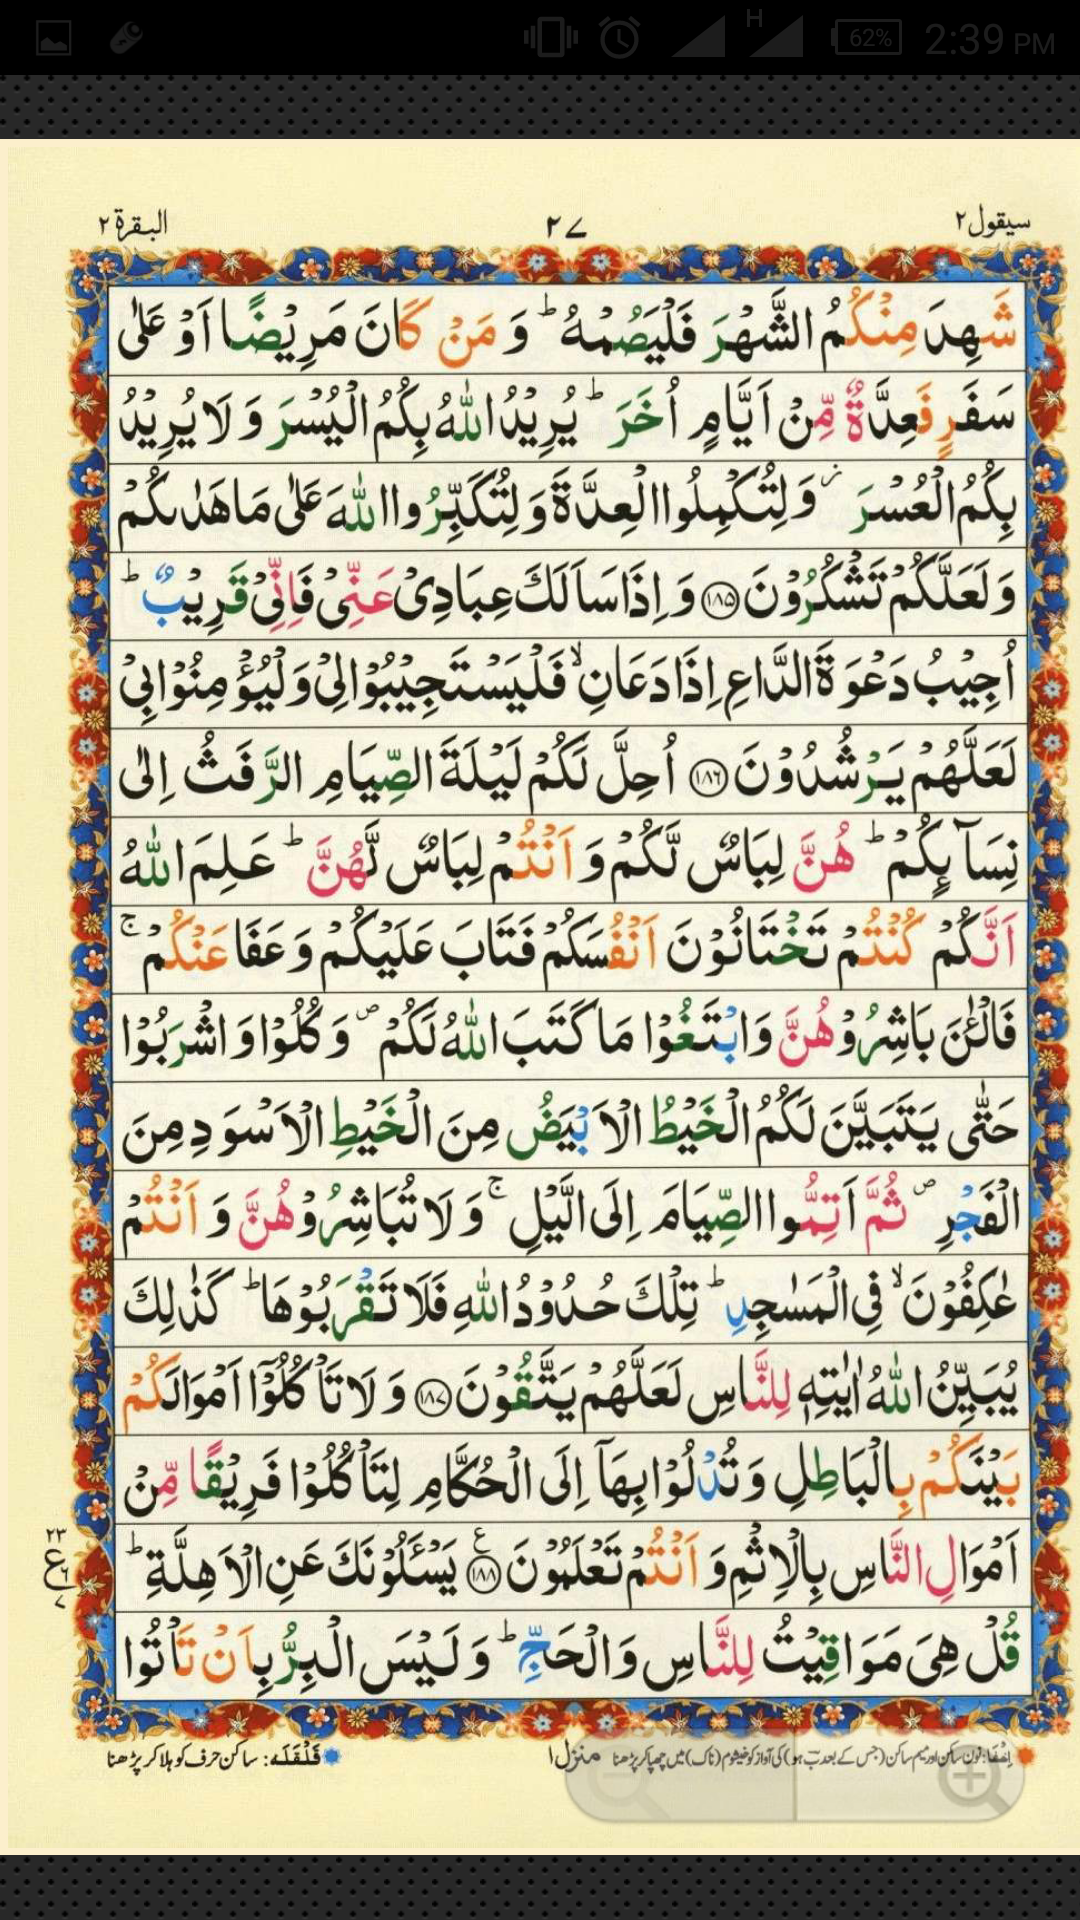 62% 2:39 PM
H
سيقول ٢
٢٧
البقرة ٢
شَهِدَ مِنْكُمُ الشَّهْرَ فَلْيَصُمْهُ ؕ وَ مَنْ كَانَ مَرِيْضًا اَوْ عَلٰى
سَفَرٍ فَعِدَّةٌ مِّنْ اَيَّامٍ اُخَرَ ؕ يُرِيْدُ اللّٰهُ بِكُمُ الْيُسْرَ وَ لَا يُرِيْدُ
بِكُمُ الْعُسْرَ ؗ وَ لِتُكْمِلُوا الْعِدَّةَ وَ لِتُكَبِّرُوا اللّٰهَ عَلٰى مَا هَدٰىكُمْ
وَ لَعَلَّكُمْ تَشْكُرُوْنَ ﴿۱۸۵﴾ وَ اِذَا سَاَلَكَ عِبَادِیْ عَنِّیْ فَاِنِّیْ قَرِيْبٌ ؕ
اُجِيْبُ دَعْوَةَ الدَّاعِ اِذَا دَعَانِ ۙ فَلْيَسْتَجِيْبُوْا لِیْ وَ لْيُؤْمِنُوْا بِیْ
لَعَلَّهُمْ يَرْشُدُوْنَ ﴿۱۸۶﴾ اُحِلَّ لَكُمْ لَيْلَةَ الصِّيَامِ الرَّفَثُ اِلٰى
نِسَآئِكُمْ ؕ هُنَّ لِبَاسٌ لَّكُمْ وَ اَنْتُمْ لِبَاسٌ لَّهُنَّ ؕ عَلِمَ اللّٰهُ
اَنَّكُمْ كُنْتُمْ تَخْتَانُوْنَ اَنْفُسَكُمْ فَتَابَ عَلَيْكُمْ وَ عَفَا عَنْكُمْ ۚ
فَالْـٰٔنَ بَاشِرُوْهُنَّ وَ ابْتَغُوْا مَا كَتَبَ اللّٰهُ لَكُمْ ۪ وَ كُلُوْا وَ اشْرَبُوْا
حَتّٰى يَتَبَيَّنَ لَكُمُ الْخَيْطُ الْاَبْيَضُ مِنَ الْخَيْطِ الْاَسْوَدِ مِنَ
الْفَجْرِ ۪ ثُمَّ اَتِمُّوا الصِّيَامَ اِلَى الَّيْلِ ۚ وَ لَا تُبَاشِرُوْهُنَّ وَ اَنْتُمْ
عٰكِفُوْنَ ۙ فِی الْمَسٰجِدِ ؕ تِلْكَ حُدُوْدُ اللّٰهِ فَلَا تَقْرَبُوْهَا ؕ كَذٰلِكَ
يُبَيِّنُ اللّٰهُ اٰيٰتِهٖ لِلنَّاسِ لَعَلَّهُمْ يَتَّقُوْنَ ﴿۱۸۷﴾ وَ لَا تَاْكُلُوْۤا اَمْوَالَكُمْ
بَيْنَكُمْ بِالْبَاطِلِ وَ تُدْلُوْا بِهَاۤ اِلَى الْحُكَّامِ لِتَاْكُلُوْا فَرِيْقًا مِّنْ
اَمْوَالِ النَّاسِ بِالْاِثْمِ وَ اَنْتُمْ تَعْلَمُوْنَ ﴿۱۸۸﴾ ع يَسْـَٔلُوْنَكَ عَنِ الْاَهِلَّةِ ؕ
٢٣
ع
٦
٧
قُلْ هِیَ مَوَاقِيْتُ لِلنَّاسِ وَ الْحَجِّ ؕ وَ لَيْسَ الْبِرُّ بِاَنْ تَاْتُوا
اِخفَا: نون ساکن اور میم ساکن (جس کے بعد بَ ہو) کی آواز کو خیشوم (ناک) میں چھپا کر پڑھنا
منزل ١
قَلْقَلَه: ساکن حرف کو ہلا کر پڑھنا